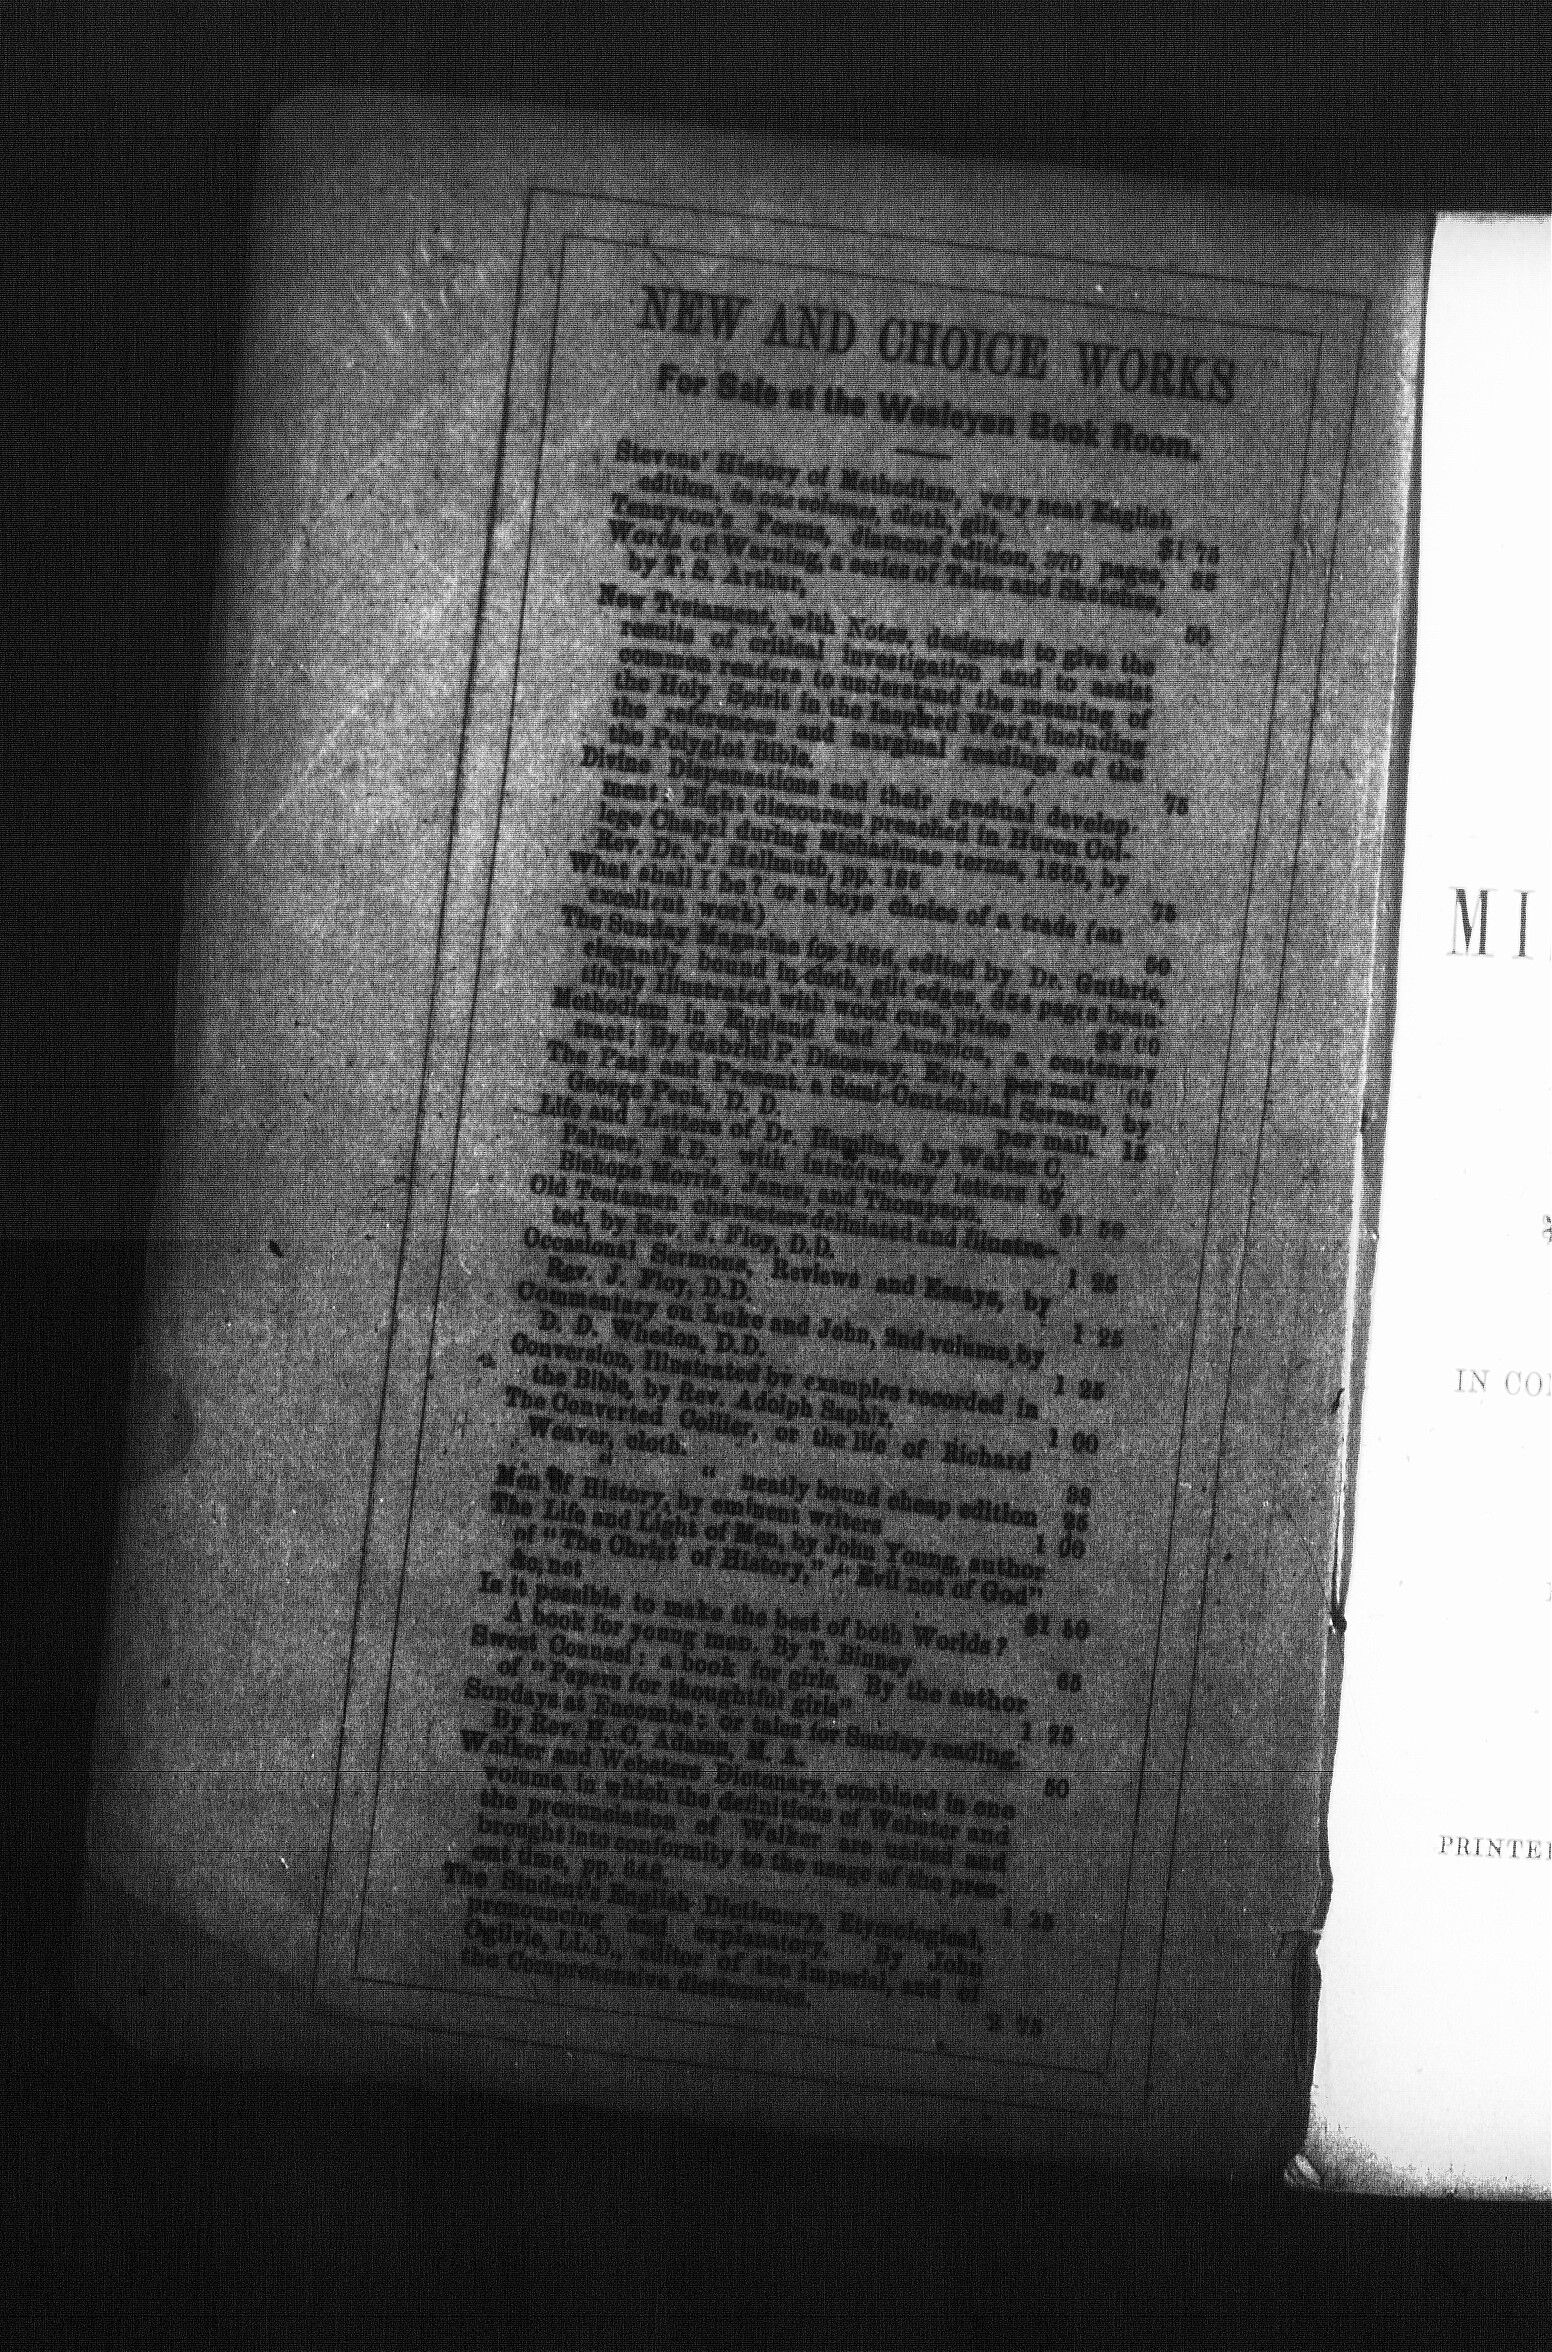 NEW AND CHOICE WORKS
For Sale at the Wesleyan Book Room.
Stevens' History of Methodism, very neat English
edition, in one volumes, cloth, gilt, $1 75
Tennyson's Poems, diamond edition, 970 pages, 85
Words of Warning, a series of Tales and Sketches,
by T. S. Arthur, 50
New Testament, with Notes, designed to give the
results of critical investigation and to assist
common readers to understand the meaning of
the Holy Spirit in the Inspired Word, including
the references and marginal readings of the
the Polyglot Bible. 75
Divine Dispensations and their gradual develop-
ment: Eight discourses preached in Huron Col-
lege Chapel during Michaelmas terms, 1865, by
Rev. Dr. J. Hellmuth, pp. 185 75
What shall I be? or a boys choice of a trade (an
excellent work) 50
The Sunday Magazine for 1866, edited by Dr. Guthrie,
elegantly bound in cloth, gilt edges, 854 pages beau-
tifully illustrated with wood cuts, price $2 00
Methodism in England and America, a centenary
tract; By Gabriel P. Disosway, Esq., per mail 05
The Past and Present, a Semi-Centennial Sermon, by
George Peck, D. D. per mail. 15
Life and Letters of Dr. Hamline, by Walter C.
Palmer, M.D., with introductory letters by
Bishops Morris, Janes, and Thompson. $1 50
Old Testamen characters deliniated and illustra-
ted, by Rev. J. Floy, D.D. 1 25
Occasional Sermons, Reviews and Essays, by
Rev. J. Floy, D.D. 1 25
Commentary on Luke and John, 2nd volume by
D. D. Whedon, D.D. 1 25
Conversion, Illustrated by examples recorded in
the Bible, by Rev. Adolph Saphir, 1 00
The Converted Collier, or the life of Richard
Weaver, cloth. 38
" " neatly bound cheap edition 25
Men of History, by eminent writers 1 00
The Life and Light of Men, by John Young, author
of "The Christ of History," "Evil not of God"
&c, net $1 50
Is it possible to make the best of both Worlds?
A book for young men. By T. Binney 65
Sweet Counsel: a book for girls. By the author
of "Papers for thoughtful girls" 1 25
Sundays at Encombe; or tales for Sunday reading.
By Rev. H. C. Adams, M. A. 50
Walker and Websters Dictonary, combined in one
volume, in which the definitions of Webster and
the pronunciation of Walker are united and
brought into conformity to the usage of the pres-
ent time, pp. 1 25
The Student's English Dictionary, Etymological,
pronouncing and explanatory. By John
Ogilvie, LL.D. editor of the Imperial, and of
the Comprehensive dictionaries. 2 75
MI
IN CO
PRINTE